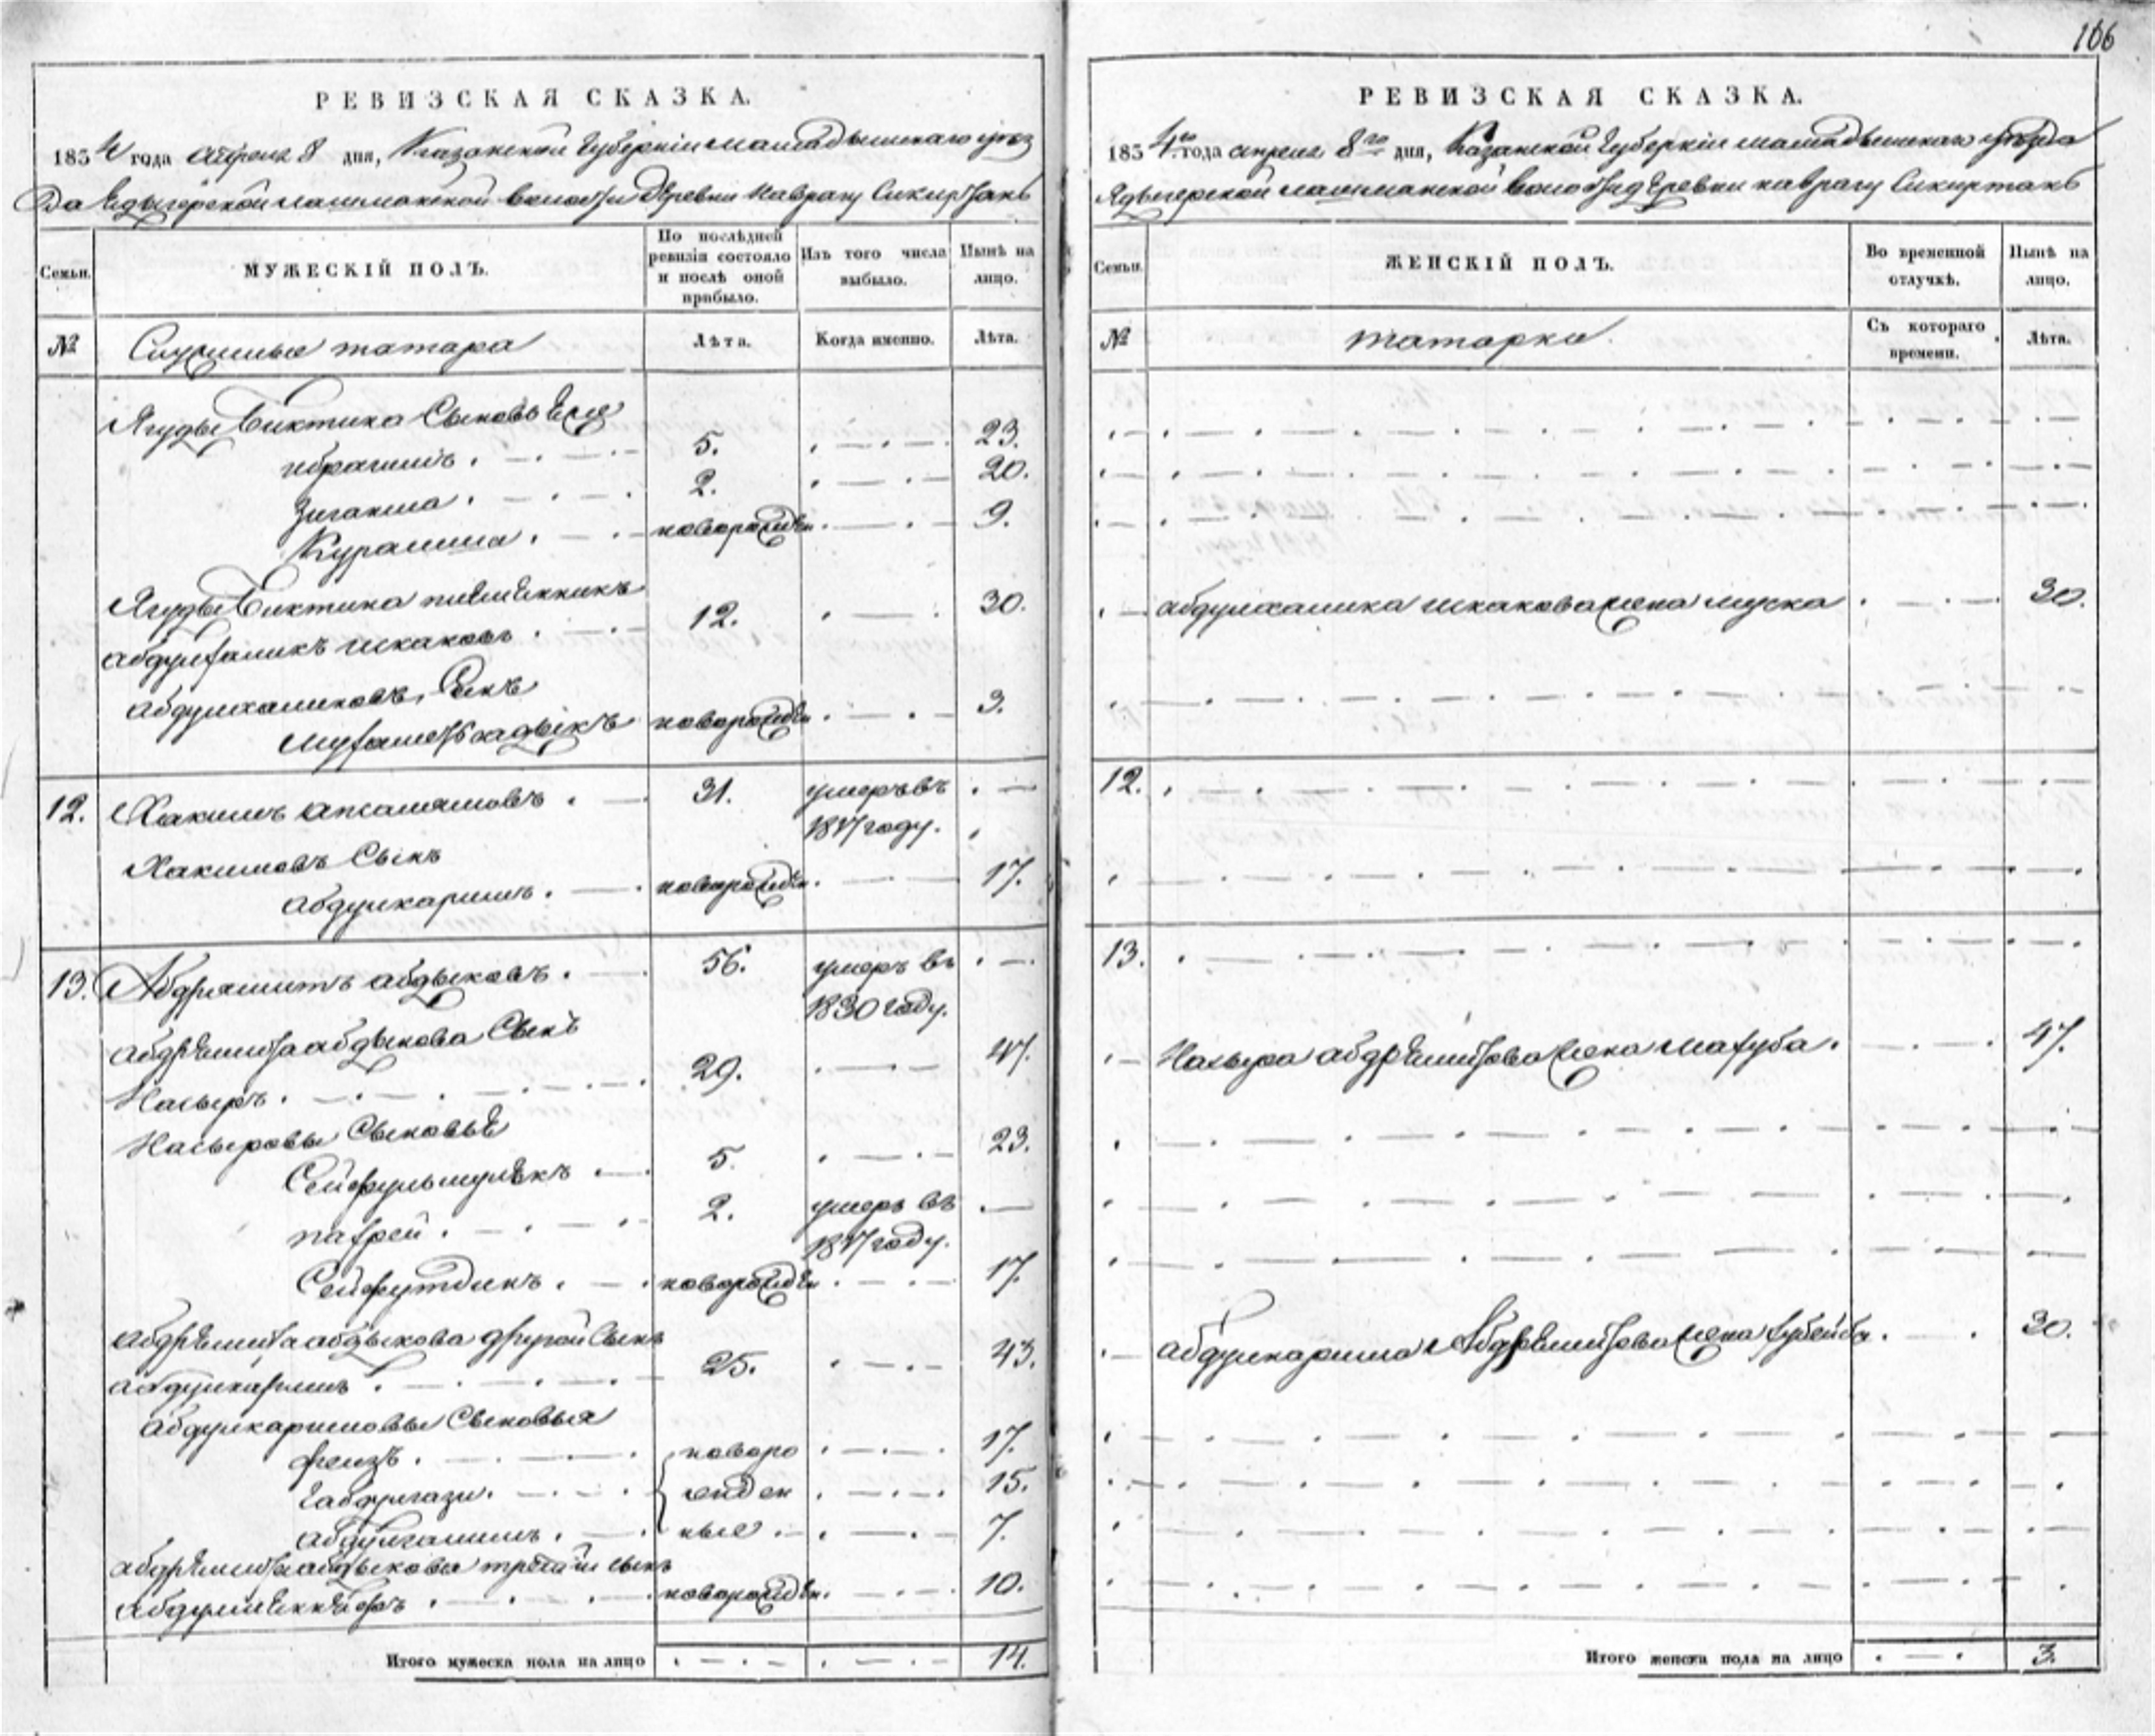 166
РЕВИЗСКАЯ СКАЗКА.
1834 года апреля 8 дня, Казанской Губернiи мамадышскаго уѣз
да Ядыгерской лашманской волости деревни Наврагу Сикиртанъ
Семьи. МУЖЕСКІЙ ПОЛЪ. По послѣдней ревизіи состояло и послѣ оной прибыло. Изъ того числа выбыло. Нынѣ на лицо.
№ Служилые татара Лѣта. Когда именно. Лѣта.
Ягуды Биктина Сыновья
ибрагимъ 5. 23.
Зиганша 2. 20.
Курамша новорожден 9.
Ягуды Биктина племенникъ
абдулхаликъ исхаковъ 12. 30.
абдулхаликовъ Сынъ
мухаметьсадыкъ новорожден 3.
12. Хакимъ апсалямовъ 31. умеръ въ
1817 году.
Хакимовъ Сынъ
абдулкаримъ новорожден 17.
13. Абдряшитъ абдыковъ 56. умеръ въ
1830 году.
абдрешита абдыкова Сынъ
Насыръ 29. 47.
Насыровы Сыновье
Сейфульмулюкъ 5. 23.
2. умеръ въ
1817 году.
Сейфутдинъ новорожден 17.
абдрешита абдыкова другой Сынъ
абдулкаримъ 25. 43.
абдулкаримовы Сыновья
феизъ новоро 17.
габдулгази жден 15.
абдулгалимъ ные 7.
абдрешита абдыкова третiй сынъ
новорожден 10.
Итого мужеска пола на лицо 14.
РЕВИЗСКАЯ СКАЗКА.
1834го года апреля 8го дня, Казанской Губернiи мамадышскаго уѣзда
Ядыгерской лашманской волости деревни наврагу Сикиртанъ
Семьи. ЖЕНСКІЙ ПОЛЪ. Во временной отлучкѣ. Нынѣ на лицо.
№ татарки Съ котораго времени. Лѣта.
абдулхалика исхакова жена 30.
12.
13.
Насыра абдрешитова жена махуба 47.
абдулкарима Абдрешитова жена зубейда 30.
Итого женска пола на лицо 3.